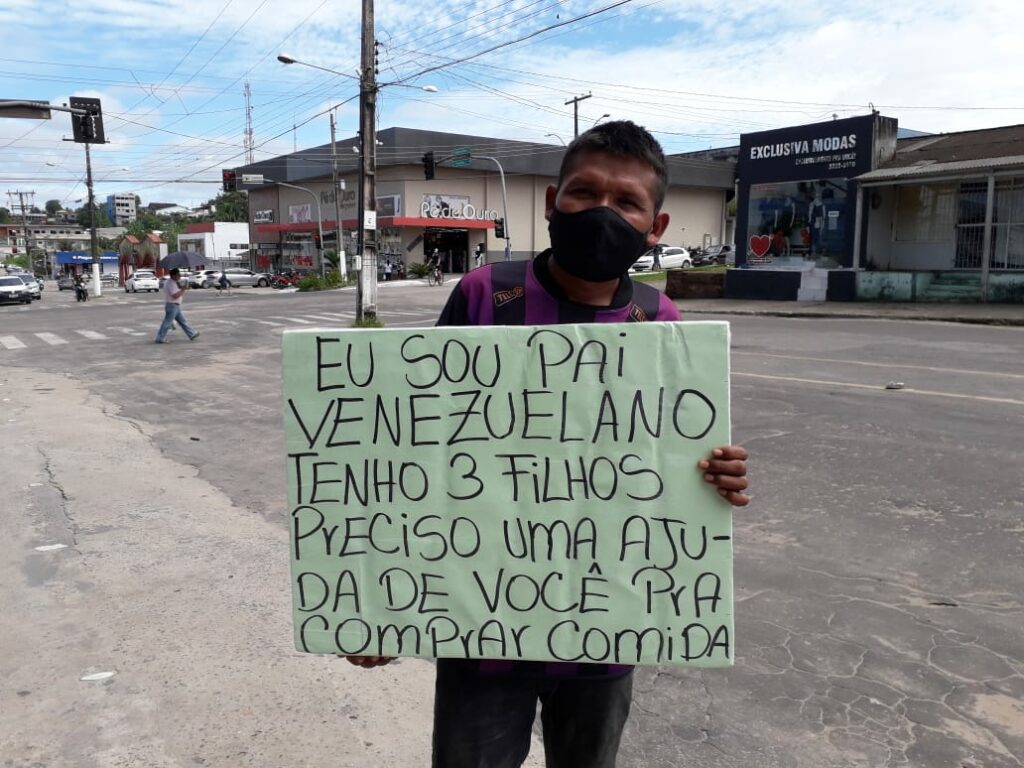 EXCLUSIVA MODAS
Pé de Ouro
EU SOU PAi
VENEZUELANO
TENHO 3 FiLHOS
PrECISO UMA AJU-
DA DE VOCÊ PrA
COMPrAr COMiDA